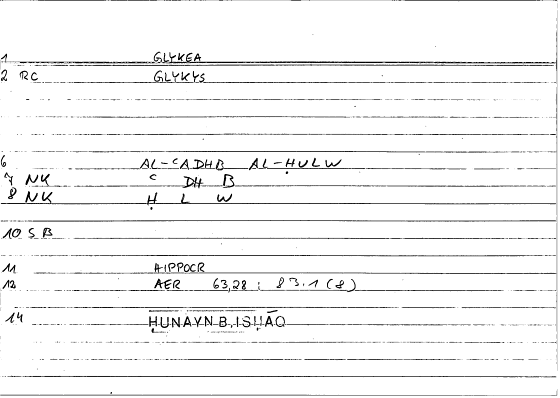 1 GLYKEA
2 RC GLYKYS
6 AL-ᶜADHB AL-ḤULW
7 NK ᶜ DH B
8 NK Ḥ L W
10 SB
11 HIPPOCR
12 AER 63,28 : 83.1 (8)
14 ḤUNAYN B. ISḤĀQ